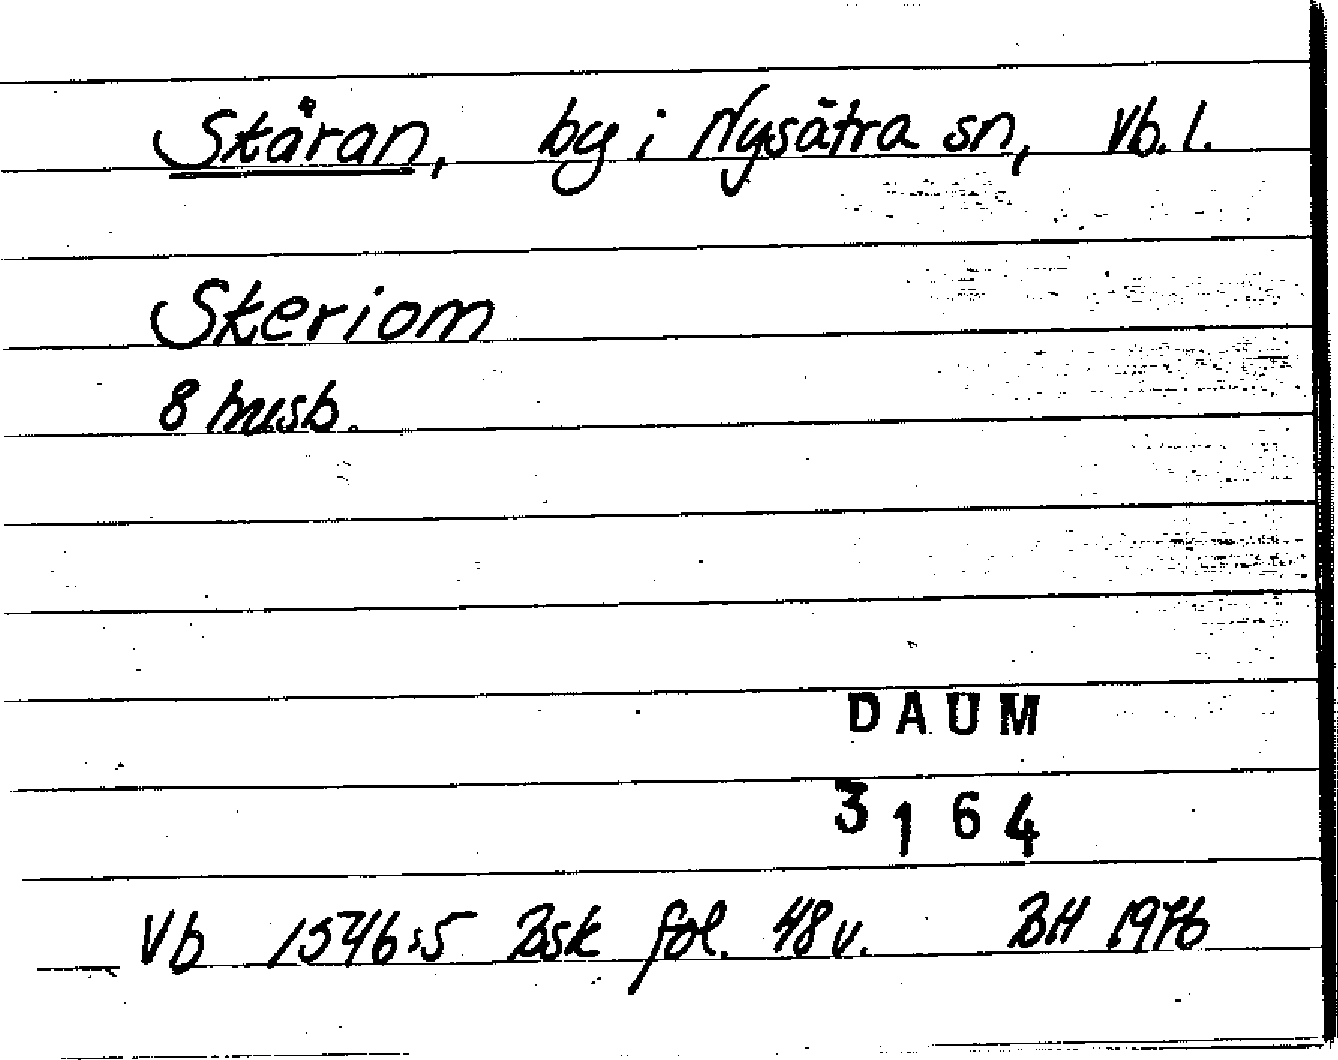 Skäran, by i Nysätra sn, Vb. l.
Skeriom
8 husb.
DAUM
3164
Vb 1546:5 Bsk fol. 48 v. BH 1976